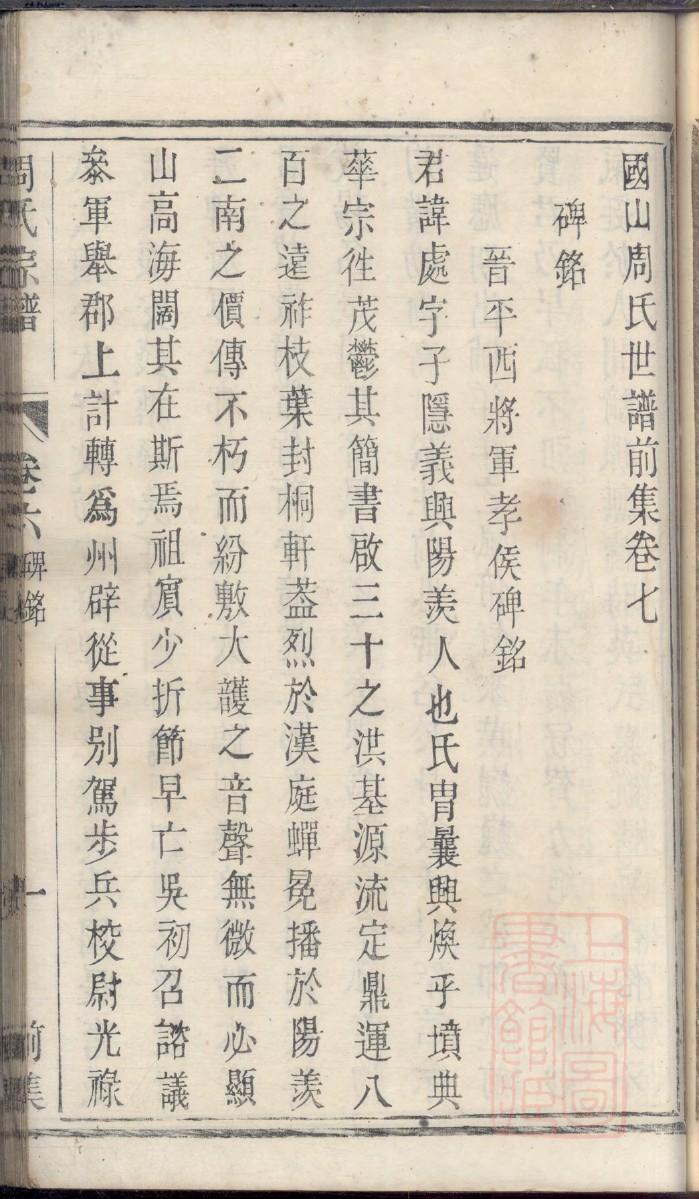 國山周氏世譜前集卷七
碑銘
晉平西將軍孝侯碑銘
君諱處字子隱義興陽羨人也氏胄曩興煥乎墳典
華宗往茂鬱其簡書啟三十之洪基源流定鼎運八
百之遠祚枝葉封桐軒葢烈於漢庭蟬冕播於陽羨
二南之價傳不朽而紛敷大護之音聲無微而必顯
山高海闊其在斯焉祖賔少折節早亡吳初召諮議
叅軍舉郡上計轉爲州辟從事別駕步兵校尉光祿
周氏宗譜
卷六
碑銘
一
前集
上海圖
書館藏